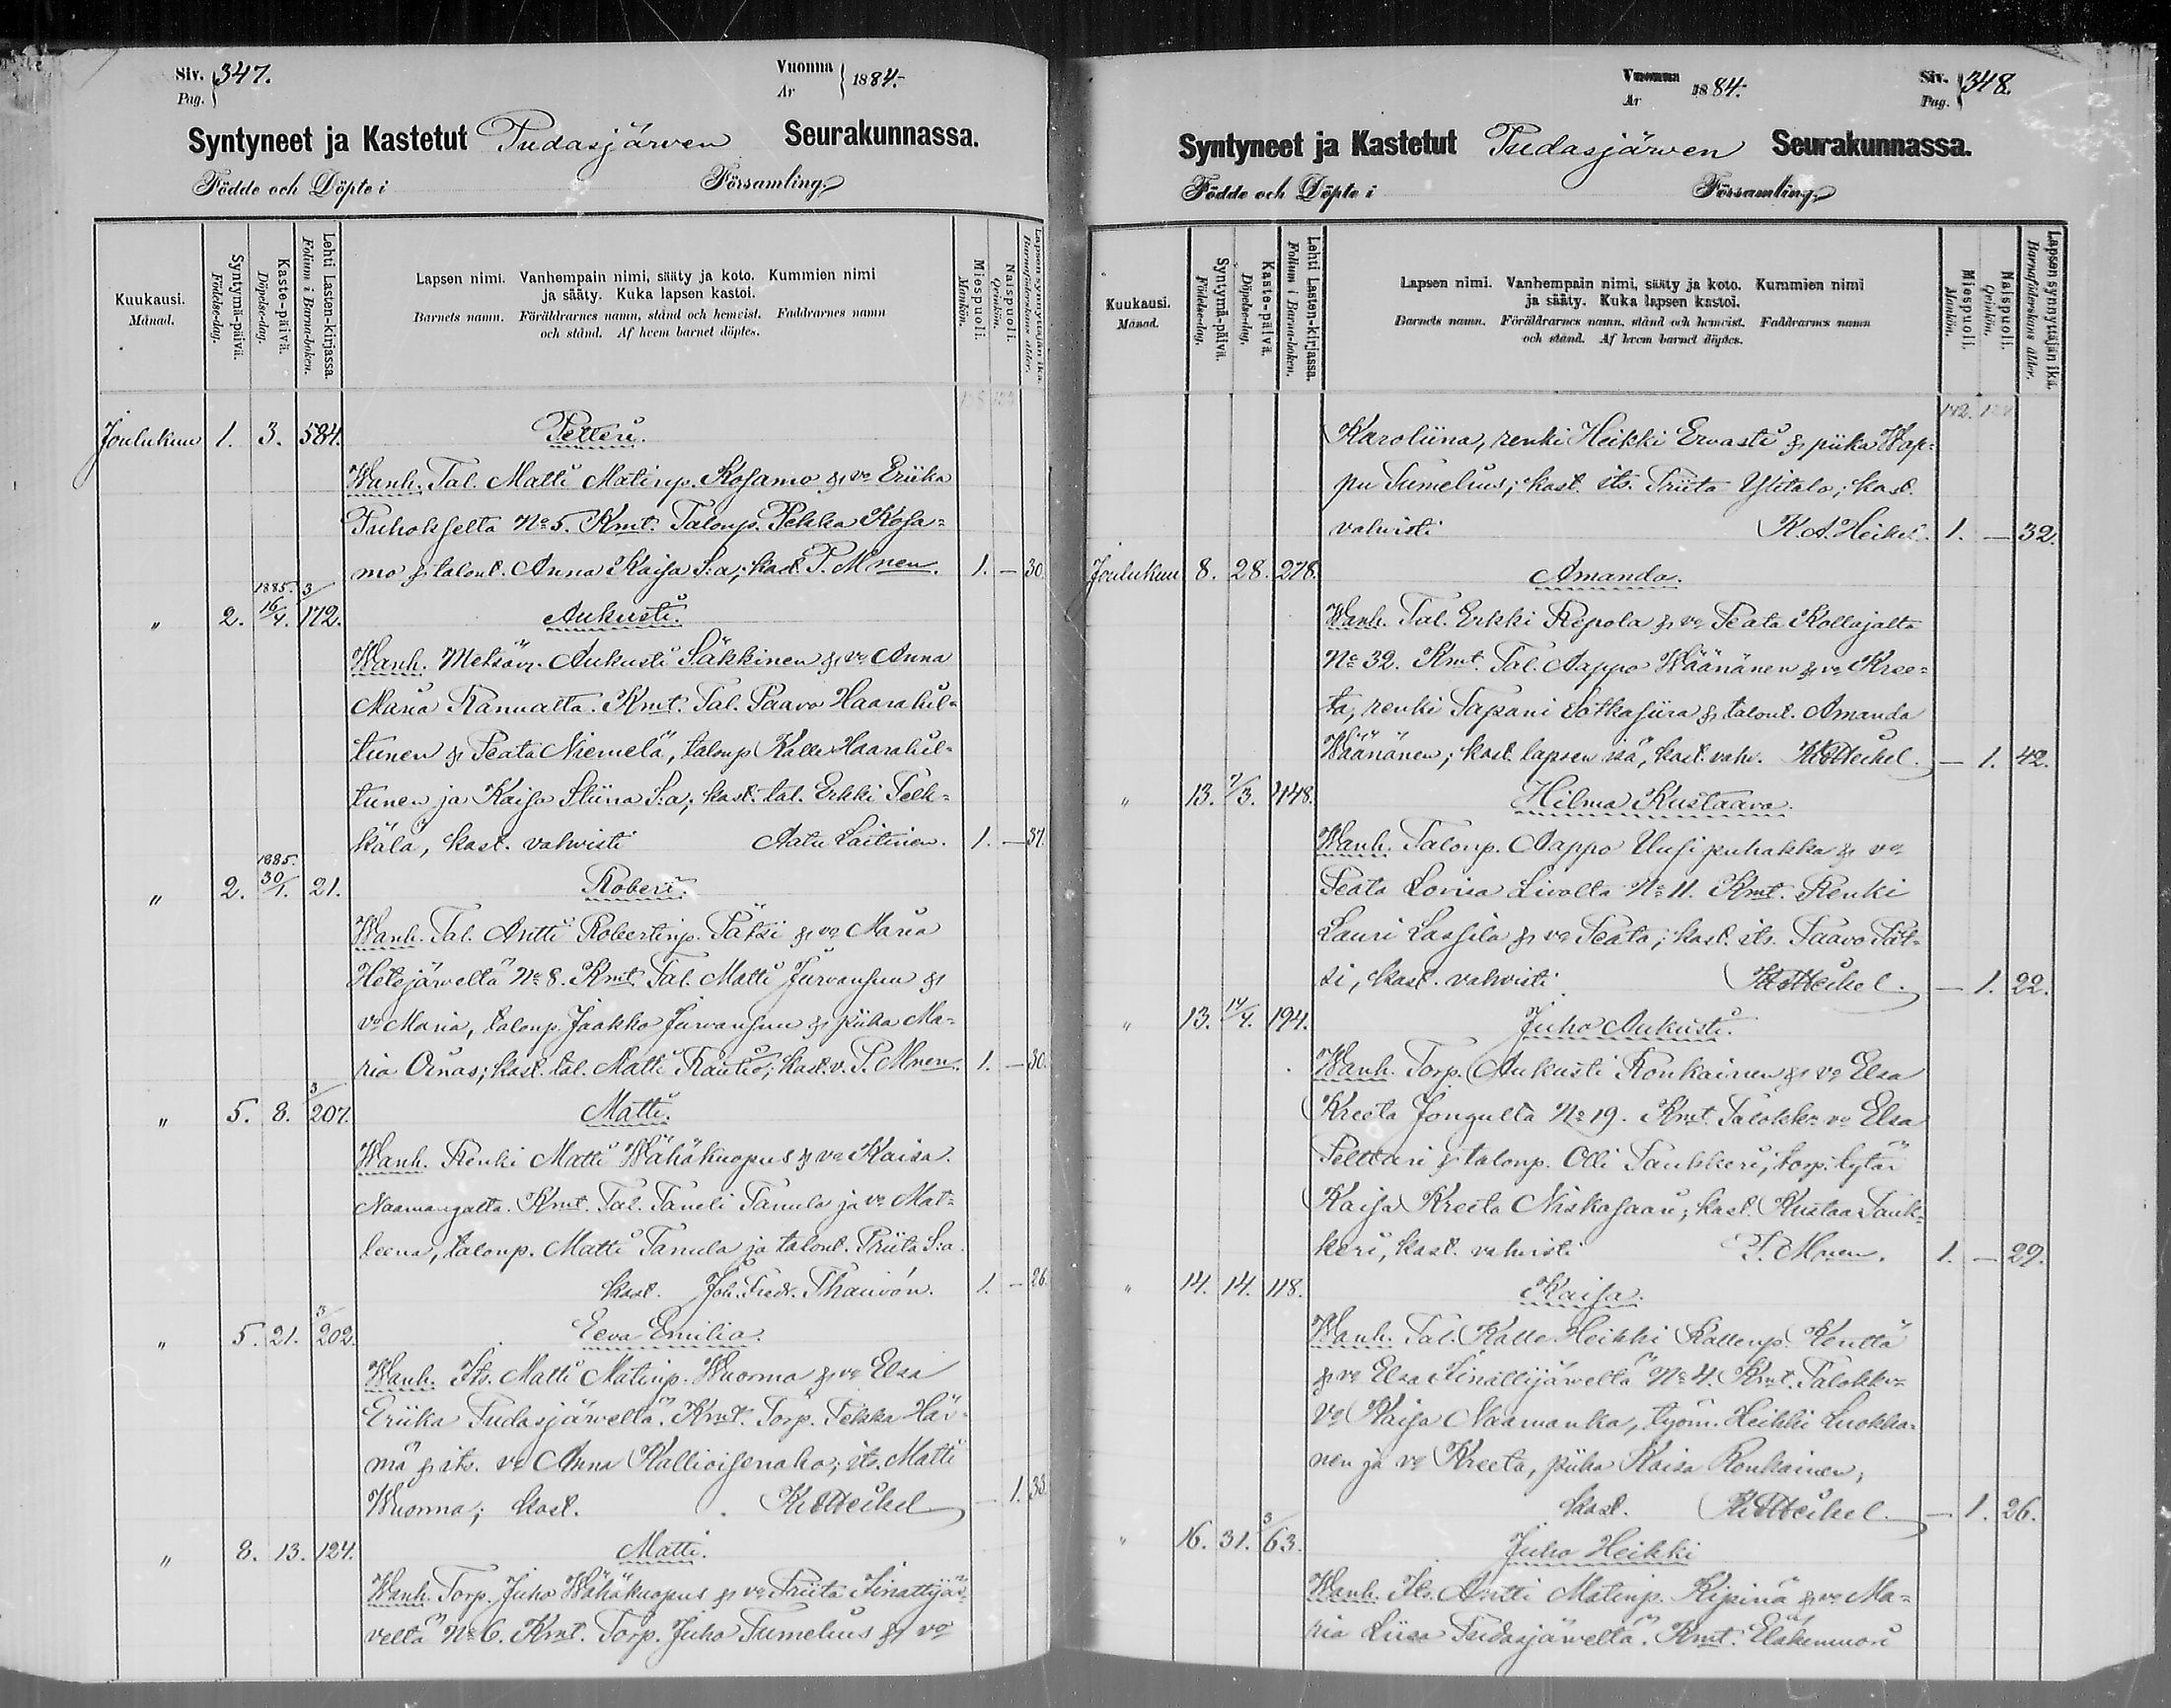 Siv. 347.
Pag.
Vuonna 1884.
År
Syntyneet ja Kastetut Pudasjärven Seurakunnassa.
Födde och Döpte i Församling.
Kuukausi.
Månad.
Syntymä-päivä.
Födelse-dag.
Kaste-päivä.
Döpelse-dag.
Lehti Lasten-kirjassa.
Folium i Barna-boken.
Lapsen nimi. Vanhempain nimi, sääty ja koto. Kummien nimi
ja sääty. Kuka lapsen kastoi.
Barnets namn. Föräldrarnes namn, stånd och hemvist. Faddrarnes namn
och stånd. Af hvem barnet döptes.
Miespuoli.
Mankön.
Naispuoli.
Qvinkön.
Lapsen synnyttäjän ikä.
Barnaföderskans ålder.
Joulukuu 1. 3. 584. Petteri.
Wanh. Tal. Matti Matinp. Kosamo & vo Eriika
Puhokselta No 5. Kmt. Talonp. Pekka Kosa=
mo & talont. Anna Kaisa S:a; kast. P. Mnen. 1. — 30.
„ 2. 1885. 16/4. 3/172. Aukusti.
Wanh. Metsäv. Aukusti Säkkinen & vo Anna
Maria Ranualta. Kmt. Tal. Paavo Haarahil=
tunen & Peata Niemelä, talonp Kalle Haarahil=
tunen ja Kaisa Stiina S:a; kast. tal. Erkki Pelk=
kälä, kast. vahvisti Aatu Laitinen. 1. — 37.
„ 2. 1885. 30/1. 21. Robert.
Wanh. Tal. Antti Robertinp. Pätsi & vo Maria
Hetejärveltä No 8. Kmt. Tal. Matti Jurvansuu &
vo Maria, talonp. Jaakko Jurvansuu & piika Ma=
ria Oinas; kast. tal. Matti Rautio; kast. v. P. Mnen. 1. — 30.
„ 5. 8. 3/207. Matti.
Wanh. Renki Matti Wähäkuopus & vo Kaisa
Naamangalta. Kmt. Tal. Taneli Tamula ja vo Mat=
leena, talonp. Matti Tamula ja talont. Priita S:a
kast. Joh. Fredr. Thauvón. 1. — 26.
„ 5. 21. 3/202. Eeva Emilia.
Wanh. Its. Matti Matinp. Wuorma & vo Elsa
Eriika Pudasjärveltä. Kmt. Torp. Pekka Här=
mä & its. vo Anna Kallioisenaho; its. Matti
Wuorma; kast. K. A. Heikel — 1. 33.
„ 8. 13. 124. Matti.
Wanh. Torp. Juho Wähäkuopus & vo Priita Iinattijär=
veltä No 6. Kmt. Torp. Juho Tumelius & vo
Vuonna 1884.
År
Siv. 348.
Pag.
Syntyneet ja Kastetut Pudasjärven Seurakunnassa.
Födde och Döpte i Församling.
Kuukausi.
Månad.
Syntymä-päivä.
Födelse-dag.
Kaste-päivä.
Döpelse-dag.
Lehti Lasten-kirjassa.
Folium i Barna-boken.
Lapsen nimi. Vanhempain nimi, sääty ja koto. Kummien nimi
ja sääty. Kuka lapsen kastoi.
Barnets namn. Föräldrarnes namn, stånd och hemvist. Faddrarnes namn
och stånd. Af hvem barnet döptes.
Miespuoli.
Mankön.
Naispuoli.
Qvinkön.
Lapsen synnyttäjän ikä.
Barnaföderskans ålder.
Karoliina, renki Heikki Ervasti & piika Wap=
pu Tumelius; kast. its. Priita Ylitalo; kast.
vahvisti K. A. Heikel. 1. — 32.
Joulukuu 8. 28. 278. Amanda.
Wanh. Tal. Erkki Repola & vo Peata Kollajalta
No 32. Kmt. Tal. Aappo Wäänänen & vo Kree=
ta, renki Tapani Sotkasiira & talont. Amanda
Wäänänen; kast. lapsen isä, kast. vahv. K. A. Heikel. — 1. 42.
„ 13. 448. Hilma Kustaava.
Wanh. Talonp. Aappo Uusipuhakka & vo
Peata Lovisa Livolta No 11. Kmt. Renki
Lauri Lassila & vo Peata; kast. its. Paavo Pät=
si, kast. vahvisti K. A. Heikel. — 1. 22.
„ 13. 194. Juho Aukusti.
Wanh. Torp. Aukusti Ronkainen & vo Elsa
Kreeta Jongulta No 19. Kmt. Talokk: vo Elsa
Pelttari & talonp. Olli Paukkeri, torp. tytär
Kaisa Kreeta Niskasaari; kast. Kustaa Pauk=
keri, kast. vahvisti P. Mnen. 1. — 29.
„ 14. 14. 118. Kaisa.
Wanh. Tal. Kalle Heikki Kallenp. Kenttä
& vo Elsa Iinattijärveltä No 4. Kmt. Talokk:
vo Kaisa Naamanka, työm. Heikki Luokka=
nen ja vo Kreeta, piika Kaisa Ronkainen;
kast. K. A. Heikel. — 1. 26.
„ 16. 31. 3/63. Juho Heikki
Wanh. Its. Antti Matinp. Kipinä & vo Ma=
ria Liisa Pudasjärveltä. Kmt. Eläkemuori